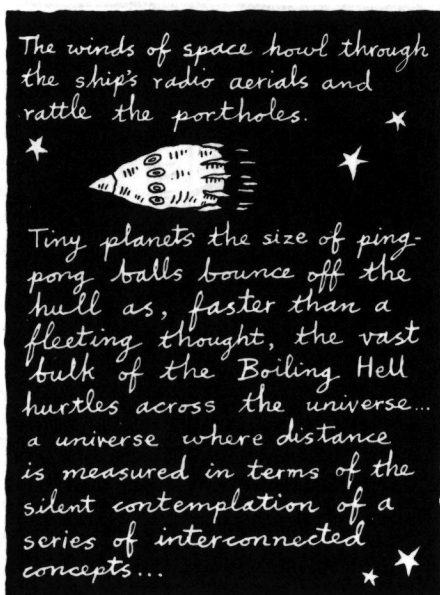 The winds of space howl through
the ship's radio aerials and
rattle the portholes.
Tiny planets the size of ping-
pong balls bounce off the
hull as, faster than a
fleeting thought, the vast
bulk of the Boiling Hell
hurtles across the universe...
a universe where distance
is measured in terms of the
silent contemplation of a
series of interconnected
concepts...